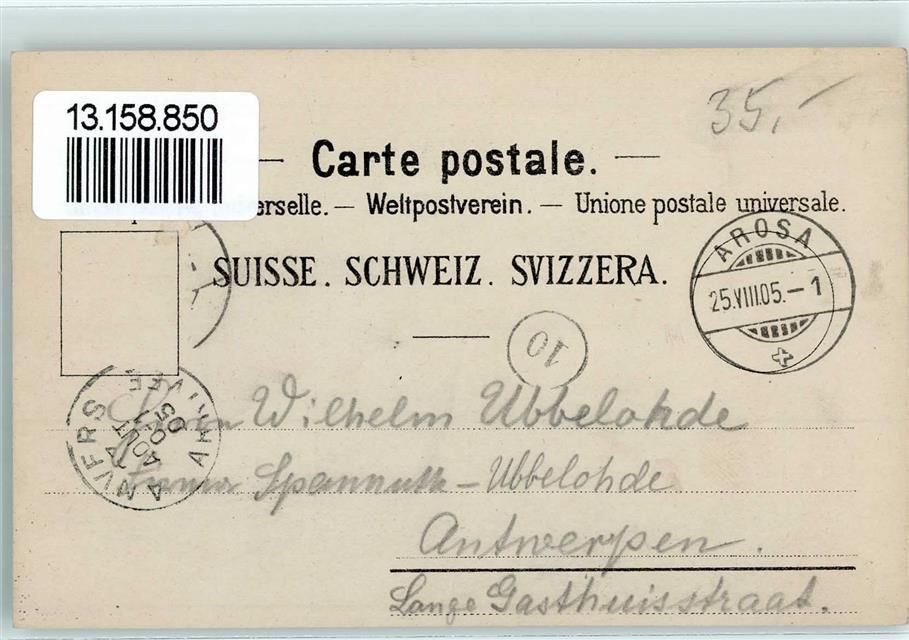 13.158.850
35,-
— Carte postale. —
erselle. — Weltpostverein. — Unione postale universale.
SUISSE. SCHWEIZ. SVIZZERA.
AROSA
25.VIII.05.–1
10
ANVERS
AOUT
05
Herrn Wilhelm Ubbelohde
Firma Spannuth-Ubbelohde
Antwerpen.
Lange Gasthuisstraat.